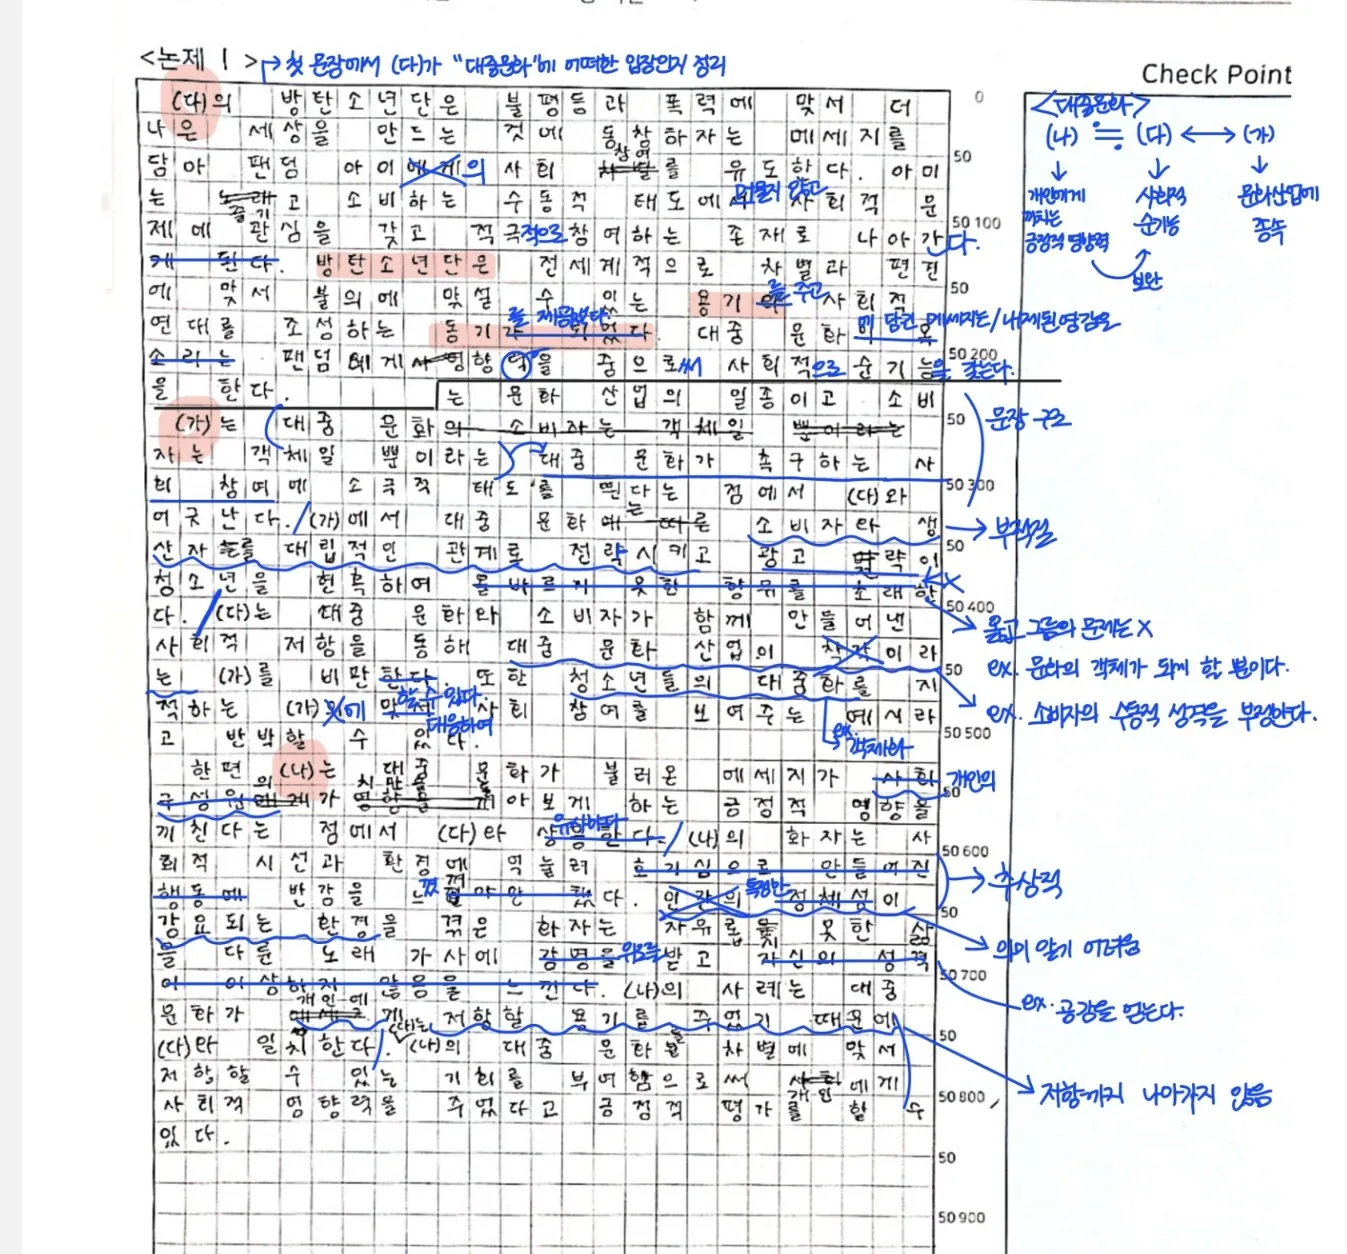 <논제 1> 첫 문장에서 (다)가 "대중문화"에 어떠한 입장인지 정리
Check Point
(다)의 방탄소년단은 불평등과 폭력에 맞서 더
나은 세상을 만드는 것에 동참하자는 메세지를
담아 팬덤 아이에게의 사회 참여를 유도한다. 아미
는 노래 즐기고 소비하는 수동적 태도에서 머물지 않고 사회적 문
제에 관심을 갖고 적극적으로 참여하는 존재로 나아간다.
게 된다. 방탄소년단은 전세계적으로 차별과 편견
에 맞서 불의에 맞설 수 있는 용기와 를 주고 사회적
연대를 조성하는 동기가 되었다. 를 제공한다. 대중 문화
에 담긴 메세지는/내재된 영감은
소리는 팬덤에게 영향력을 줌으로써 사회적으로 순기능을 갖는다.
을 한다.
는 문화 산업의 일종이고 소비
(가)는 대중 문화의 소비자는 객체일 뿐이라는
자는 객체일 뿐이라는 대중 문화가 촉구하는 사
회 참여에 소극적 태도를 띈다는 점에서 (다)와
어긋난다. (가)에서 대중 문화에 따른 는 소비자와 생
산자들을 대립적인 관계로 전락시키고 광고 전략이
청소년을 현혹하여 올바르지 못한 행위를 초래한
다. (다)는 대중 문화와 소비자가 함께 만들어낸
사회적 저항을 통해 대중 문화 산업의 착각이라
는 (가)를 비판한다. 할 수 있다. 또한 청소년들의 대중화를 지
적하는 (가)의 에 맞서 대응하여 사회 참여를 보여주는 예시라
고 반박할 수 있다.
한편 (나)는 대중 문화가 불러온 메세지가 사회 개인의
구성원에게 의 가치관을 영향을 돌아보게 하는 긍정적 영향을
끼친다는 점에서 (다)와 상통한다. 유사하다 (나)의 화자는 사
회적 시선과 환경에 억눌려 호기심으로 만들어진
행동에 반감을 느꼈다. 인간의 특정한 정체성이
강요되는 환경을 겪은 화자는 자유롭지 못한 삶
을 다룬 노래 가사에 감명을 위로를 받고 자신의 성격
이 이상하지 않음을 느낀다. (나)의 사례는 대중
문화가 개인에게 저항할 용기를 주었기 때문에
(다)와 일치한다. (다)는 (나)의 대중 문화를 차별에 맞서
저항할 수 있는 기회를 부여함으로써 사회 개인에게
사회적 영향력을 주었다고 긍정적 평가를 할 수
있다.
0
50
50 100
50
50 200
50
50 300
50
50 400
50
50 500
50
50 600
50
50 700
50
50 800
50
50 900
<대중문화>
(나) ≒ (다) ↔ (가)
개인에게
끼치는
긍정적 영향력
사회적
순기능
문화산업에
종속
보완
문장 구조
부적절
옳고 그름의 문제는 X
ex. 문화의 객체가 되게 할 뿐이다.
ex. 소비자의 수동적 성격을 부정한다.
ex.
객체화
추상적
의미 알기 어려움
ex. 공감을 얻는다.
저항까지 나아가지 않음